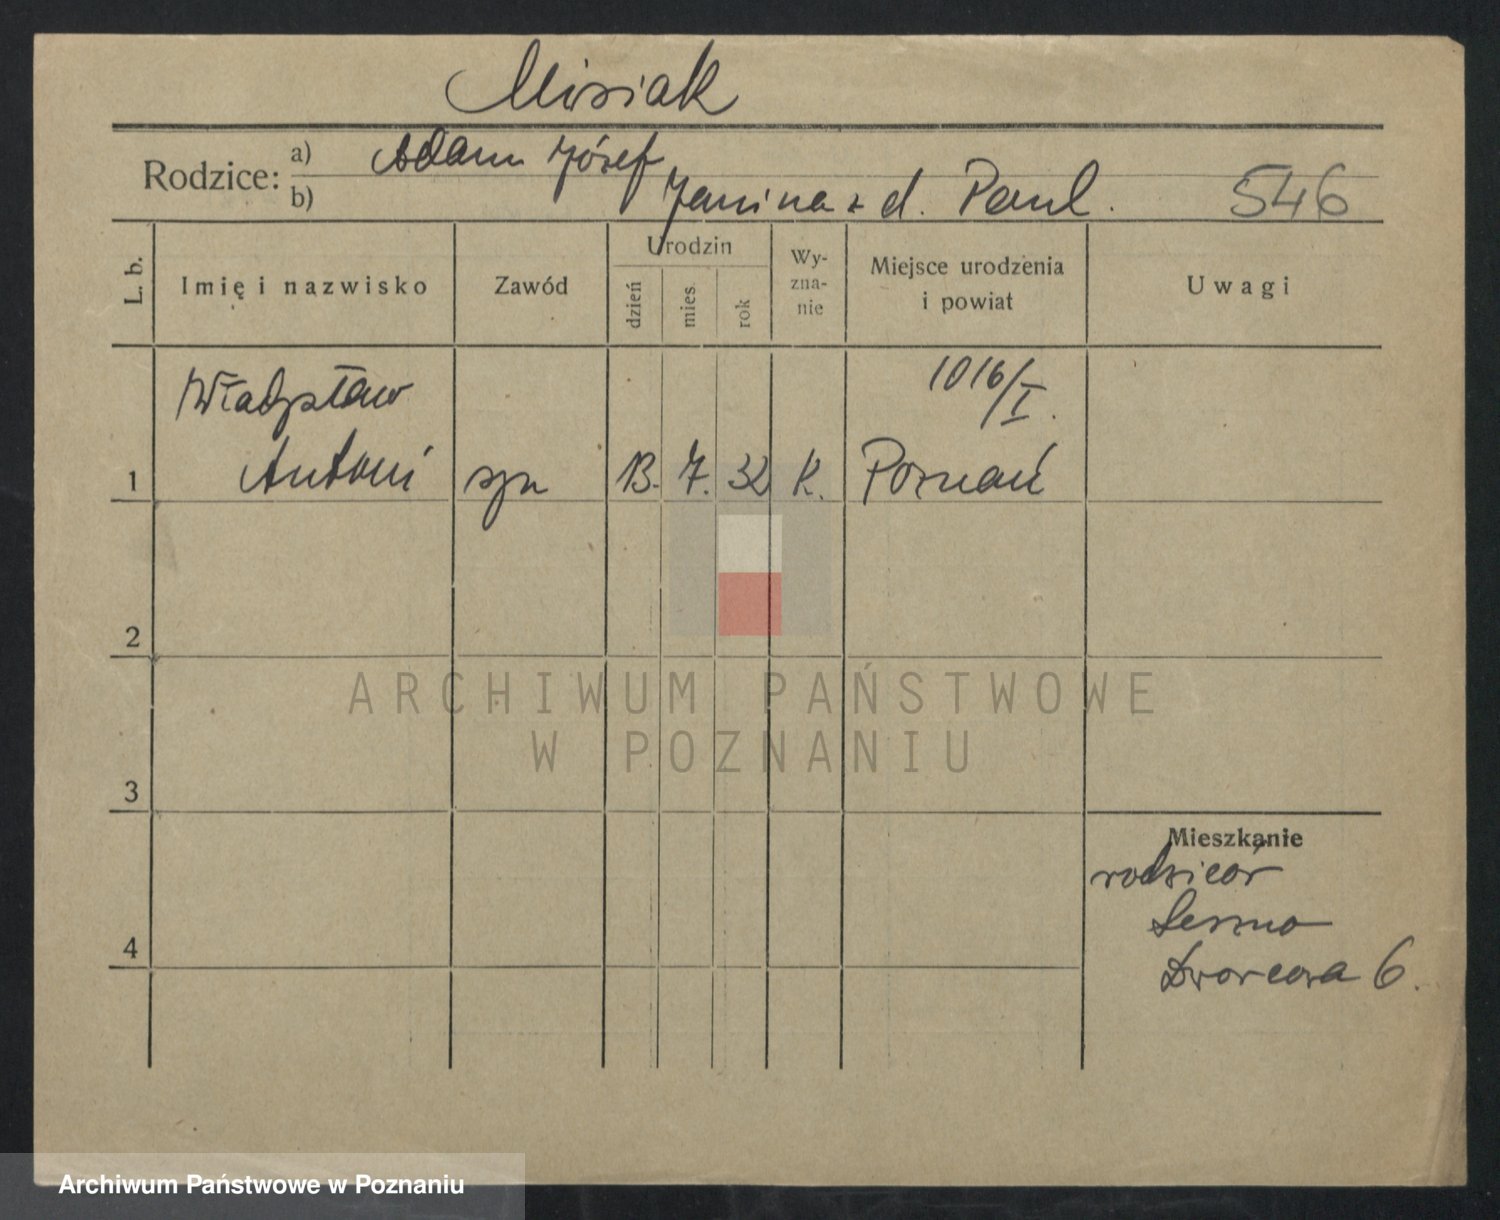 Misiak
Rodzice: a) Adam Józef
b) Janina z d. Paul. 546
L. b. Imię i nazwisko Zawód Urodzin dzień mies. rok Wy-zna-nie Miejsce urodzenia i powiat Uwagi
Władysław 1016/I.
1 Antoni syn 13. 7. 32 k. Poznań
2
ARCHIWUM PAŃSTWOWE
W POZNANIU
3
Mieszkanie
rodziców
Leszno
4 Dworcowa 6.
Archiwum Państwowe w Poznaniu